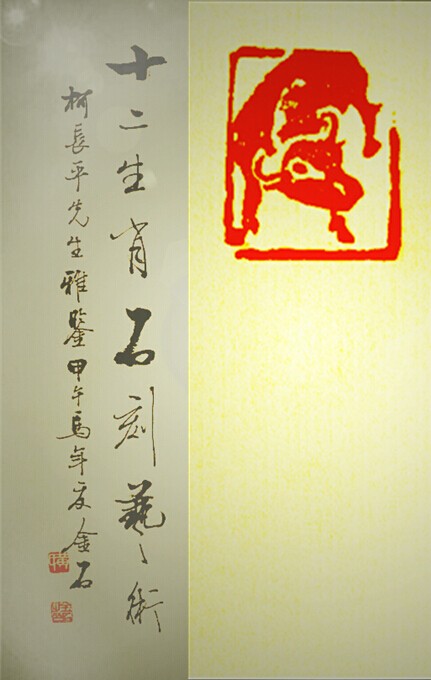 十二生肖石刻藝術
柯長平先生雅鑒甲午馬年金石